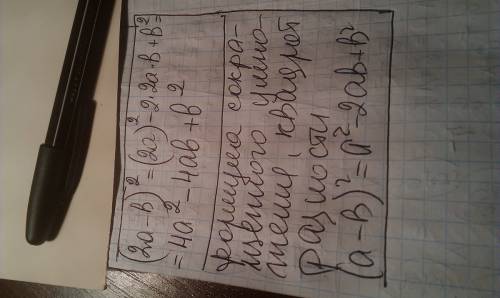 (2a-b)²=(2a)²-2·2a·b+b²=
=4a²-4ab+b²
формула сокра-
щенного умно-
жения, квадрат
разности
(a-b)²=a²-2ab+b²